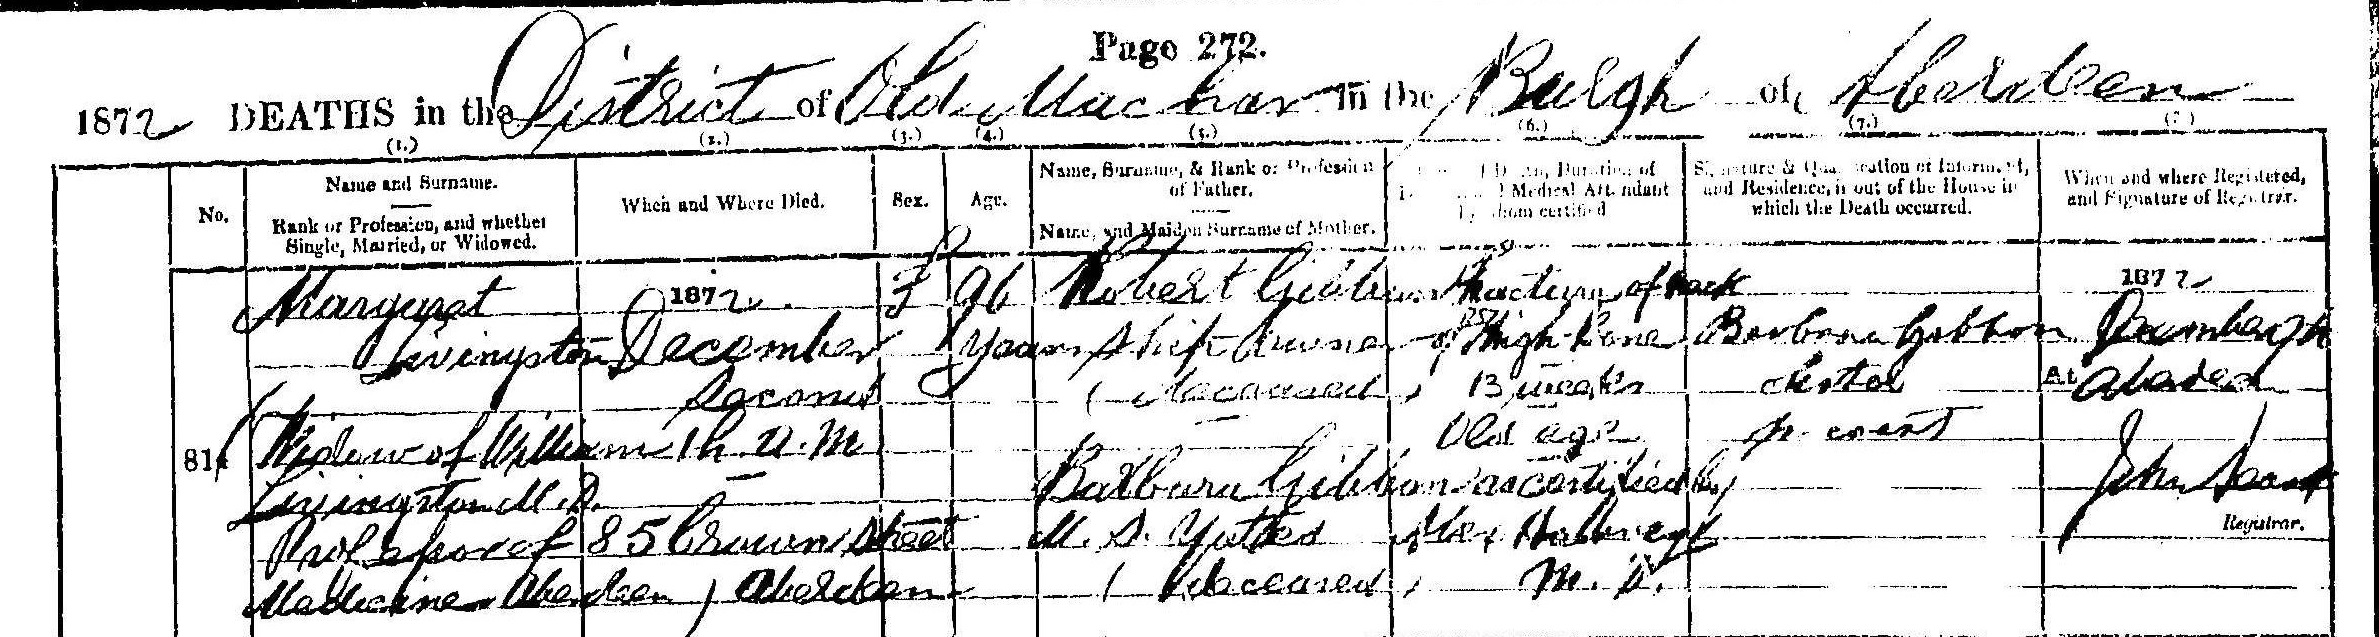 Page 272.
1872 DEATHS in the District of Old Machar in the Burgh of Aberdeen
(1.) (2.) (3.) (4.) (5.) (6.) (7.)
No.
Name and Surname.
Rank or Profession, and whether
Single, Married, or Widowed.
When and Where Died.
Sex.
Age.
Name, Surname, & Rank or Profession
of Father.
Name, and Maiden Surname of Mother.
Duration of
Medical Attendant
certified
Signature & Qualification of Informant,
and Residence, if out of the House in
which the Death occurred.
When and where Registered,
and Signature of Registrar.
Margaret
Livingston
(Widow of William
Livingston M.D.
Professor of
Medicine Aberdeen)
1872
December
Second
1h. A.M.
85 Crown Street
Aberdeen
F
96
years
Robert Gibbon
Ship Owner
(deceased)
Barbara Gibbon
M. S.
(deceased)
Fracture of neck
of Thigh bone
13 weeks
Old age
as certified by
M. D.
Barbara Gibbon
present
1872
December
At Aberdeen
John
Registrar.